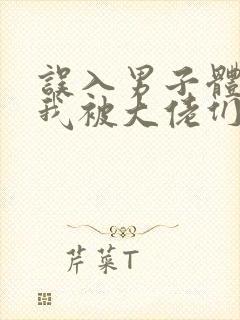 誤入男子體
我被大佬们
芹菜T